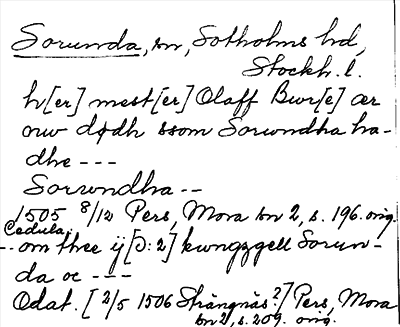 Sorunda, sn, Sotholms hd,
Stockh. l.
h[er] mest[er] Olaff Bwr[e] ær
nw dødh ssom Sorwndha ha-
dhe ---
Sorwndha --
1505 8/12 Pers, Mora sn 2, s. 196. orig.
Cedula..
-- om thee ij [ɔ: 2] kwngzgell Sorun-
da oc ---
Odat. [2/5 1506 Strängnäs?] Pers, Mora
sn 2, s. 209. orig.